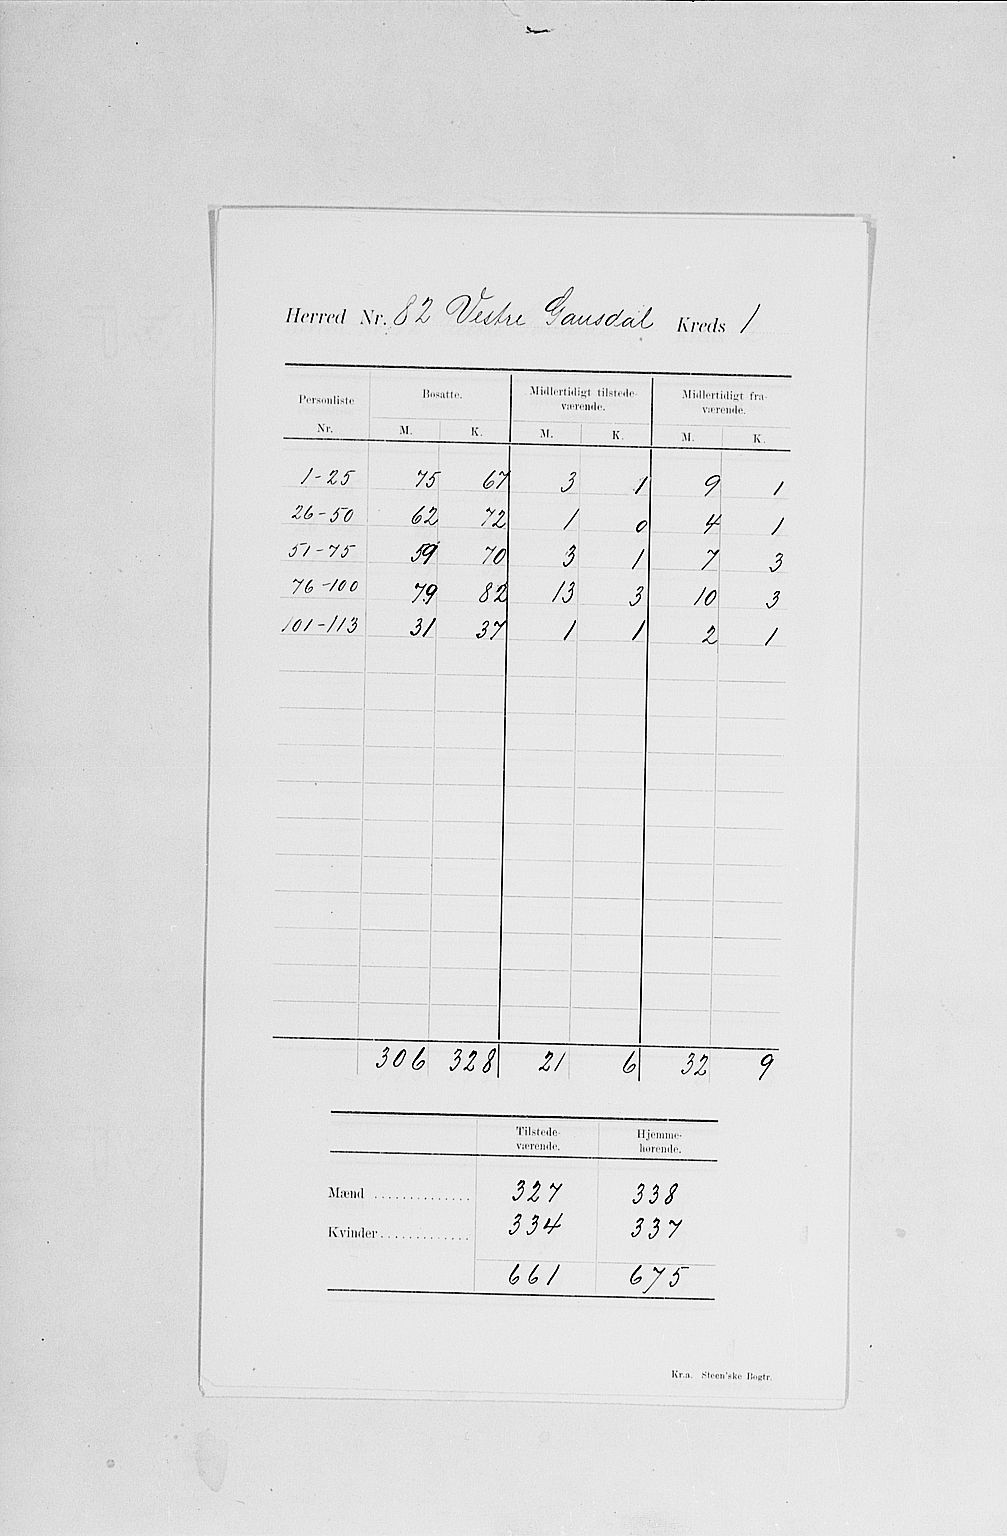 Herred Nr. 82 Vestre Gausdal Kreds 1
Personliste Nr. Bosatte. Midlertidigt tilstede-værende. Midlertidigt fra-værende.
M. K. M. K. M. K.
1-25 75 67 3 1 9 1
26-50 62 72 1 0 4 1
51-75 59 70 3 1 7 3
76-100 79 82 13 3 10 3
101-113 31 37 1 1 2 1
306 328 21 6 32 9
Tilstede-værende. Hjemme-hørende.
Mænd .............. 327 338
Kvinder............. 334 337
661 675
Kr.a. Steen'ske Bogtr.